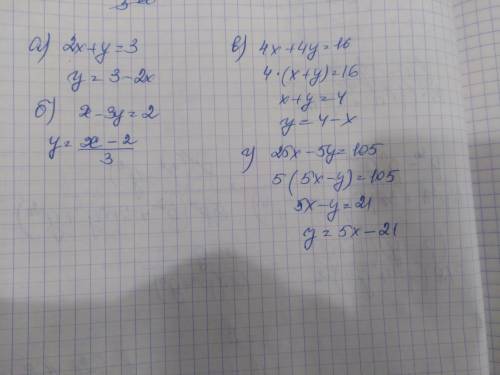 а) 2x+y=3
y = 3-2x
б) x-3y=2
y = x-2/3
в) 4x+4y=16
4·(x+y)=16
x+y=4
y=4-x
г) 25x-5y=105
5(5x-y)=105
5x-y=21
y=5x-21